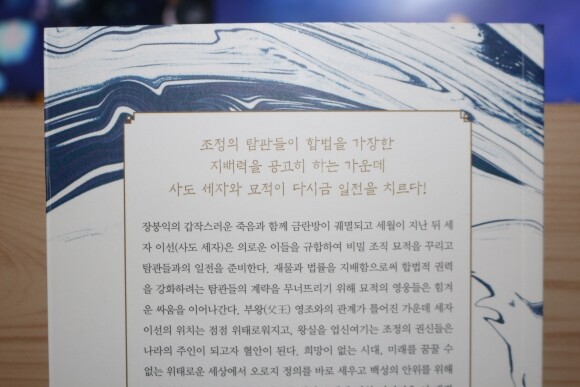 조정의 탐관들이 합법을 가장한
지배력을 공고히 하는 가운데
사도 세자와 묘적이 다시금 일전을 치르다!
장붕익의 갑작스러운 죽음과 함께 금란방이 궤멸되고 세월이 지난 뒤 세
자 이선(사도 세자)은 의로운 이들을 규합하여 비밀 조직 묘적을 꾸리고
탐관들과의 일전을 준비한다. 재물과 법률을 지배함으로써 합법적 권력
을 강화하려는 탐관들의 계략을 무너뜨리기 위해 묘적의 영웅들은 힘겨
운 싸움을 이어나간다. 부왕(父王) 영조와의 관계가 틀어진 가운데 세자
이선의 위치는 점점 위태로워지고, 왕실을 업신여기는 조정의 권신들은
나라의 주인이 되고자 혈안이 된다. 희망이 없는 시대, 미래를 꿈꿀 수
없는 위태로운 세상에서 오로지 정의를 바로 세우고 백성의 안위를 위해